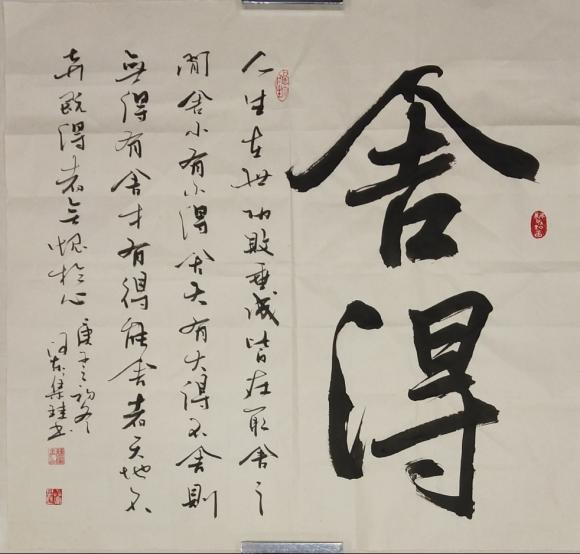 舍
得
人生在世功败垂成皆在取舍之
间舍小有小得舍大有大得不舍则
无得有舍才有得能舍者天地不
弃既得者无愧于心
庚子之初冬
集珪书